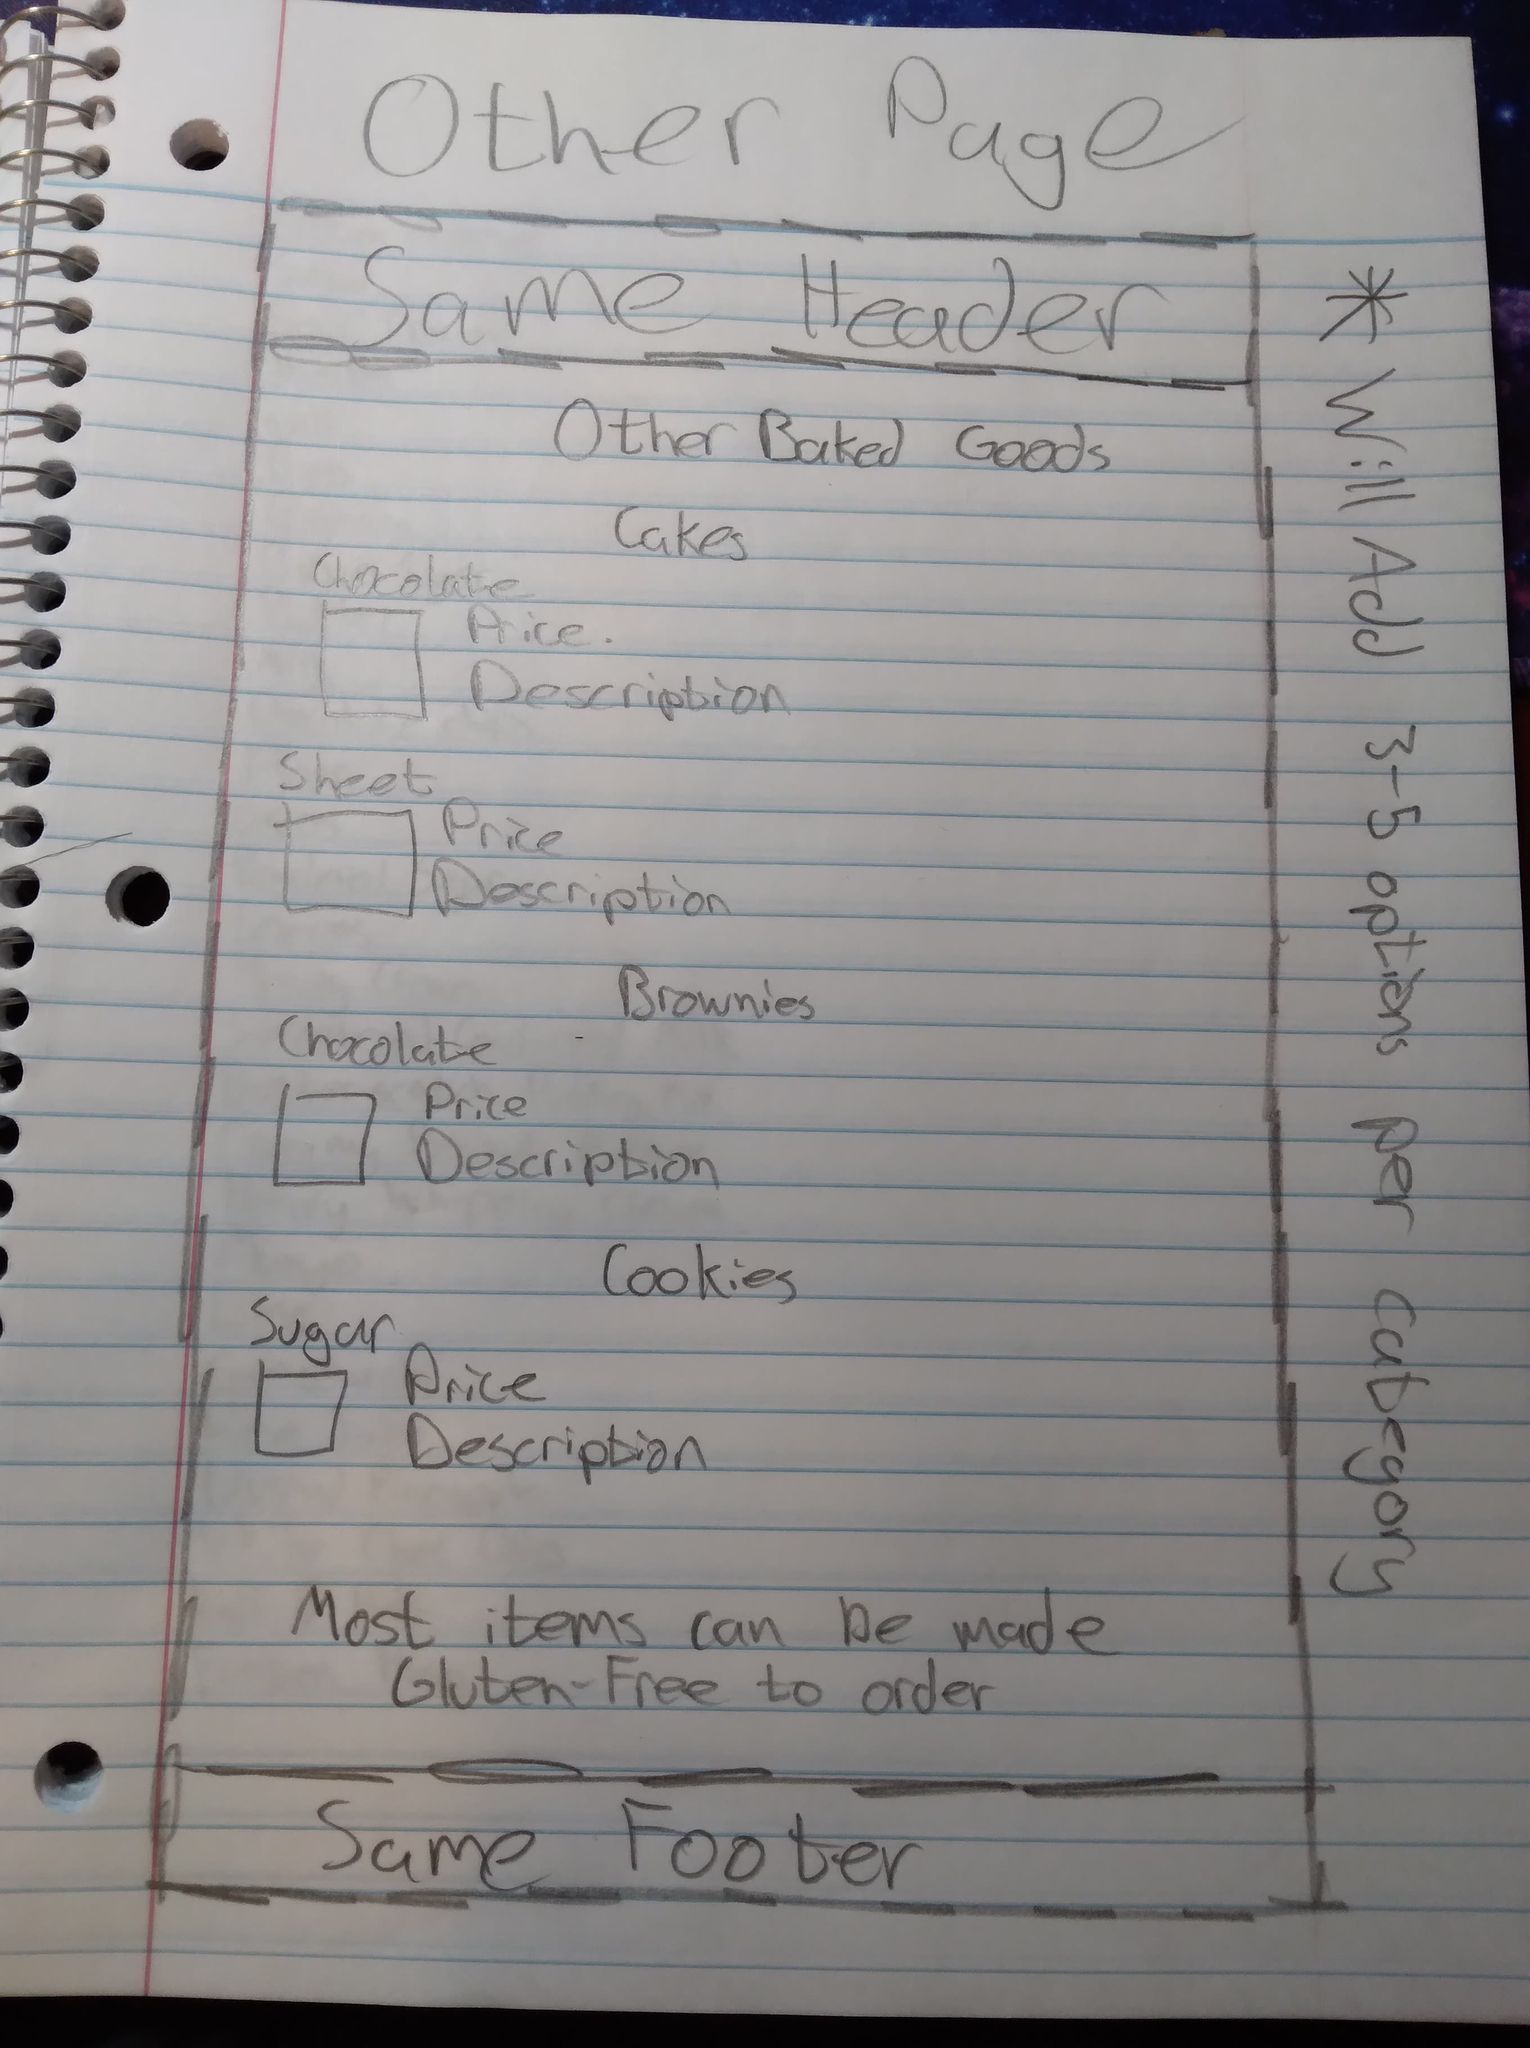 Other Page
Same Header
Other Baked Goods
Cakes
Chocolate
Price.
Description
Sheet
Price
Description
Brownies
Chocolate
Price
Description
Cookies
Sugar
Price
Description
Most items can be made
Gluten-Free to order
Same Footer
* Will Add 3-5 options per category